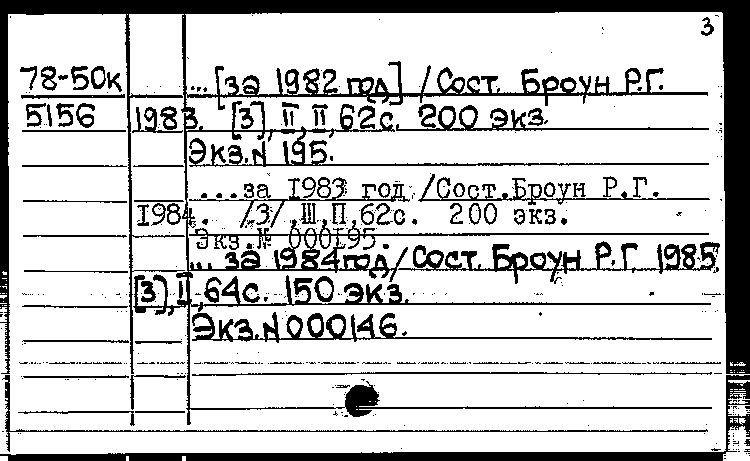 3
78-50к ... [за 1982 год] / Сост. Броун Р.Г.
5156 1983. [3], II, II, 62с. 200 экз.
Экз.№ 195.
...за 1983 год /Сост.Броун Р.Г.
1984. /3/,Ш,П,62с. 200 экз.
Экз.№ 000195.
... за 1984 год / Сост. Броун Р.Г. 1985
[3], II, 64с. 150 экз.
Экз.№ 000146.